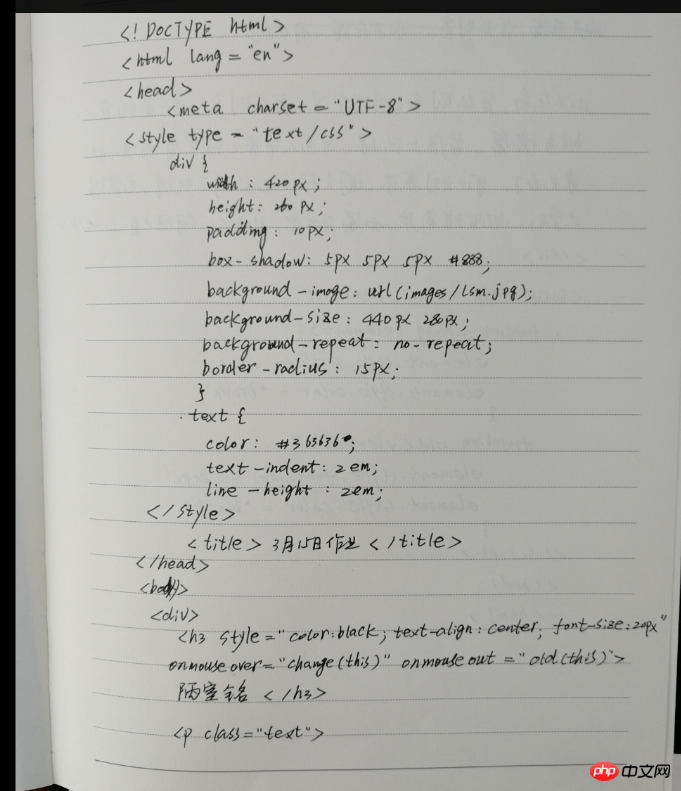 <!DOCTYPE html>
<html lang="en">
<head>
<meta charset="UTF-8">
<style type="text/css">
div {
width: 420px;
height: 260px;
padding: 10px;
box-shadow: 5px 5px 5px #888;
background-image: url(images/lsm.jpg);
background-size: 440px 280px;
background-repeat: no-repeat;
border-radius: 15px;
}
.text {
color: #363636;
text-indent: 2em;
line-height: 2em;
</style>
<title>3月15日作业</title>
</head>
<body>
<div>
<h3 style="color:black; text-align:center; font-size:20px"
onmouseover="change(this)" onmouseout="old(this)">
陋室铭</h3>
<p class="text">
php 中文网